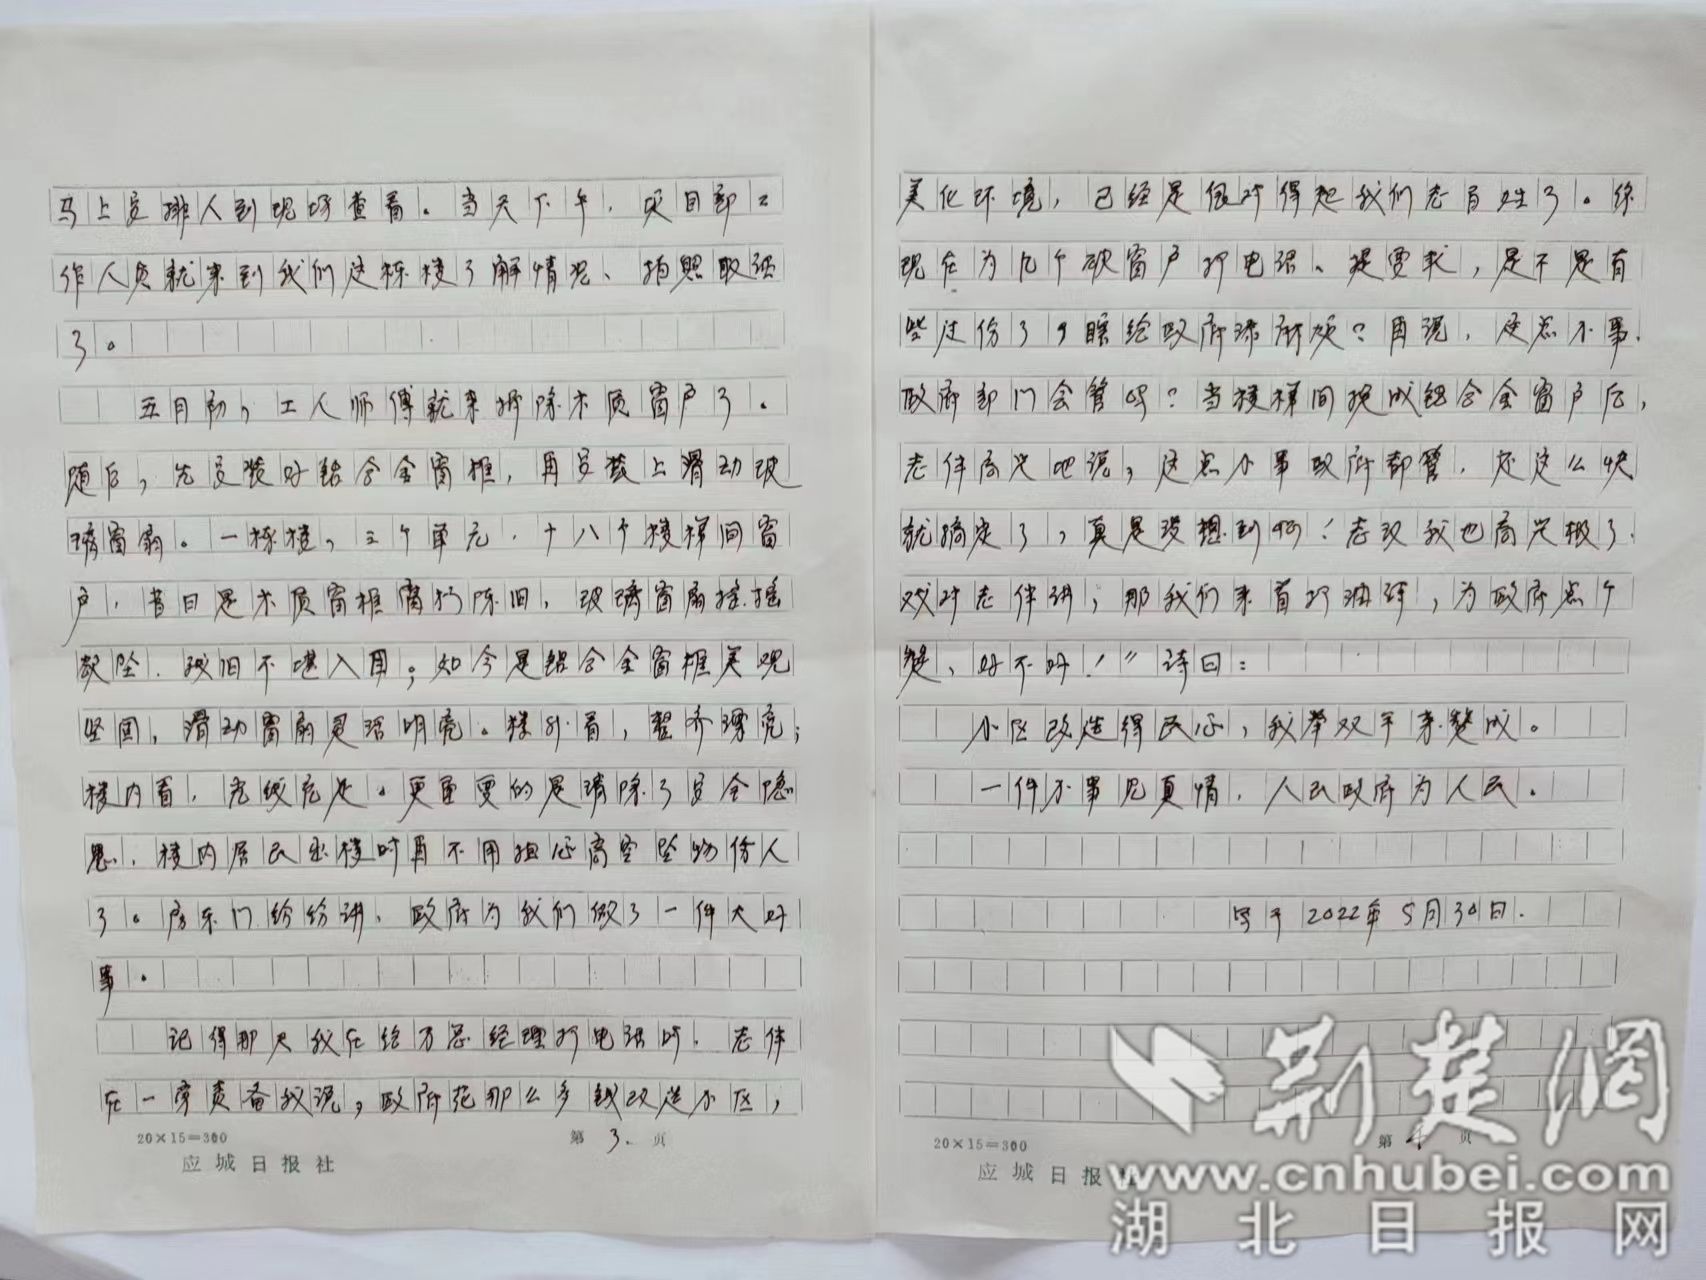 马上安排人到现场查看。当天下午，项目部工
作人员就来到我们这栋楼了解情况、拍照取证
了。
五月初，工人师傅就来拆除木质窗户了。
随后，先安装好铝合金窗框，再安装上滑动玻
璃窗扇。一栋楼，三个单元，十八个楼梯间窗
户，昔日是木质窗框腐朽陈旧，玻璃窗扇摇摇
欲坠，破旧不堪入目；如今是铝合金窗框美观
坚固，滑动窗扇灵活明亮。楼外看，整齐漂亮；
楼内看，光线充足。更重要的是清除了安全隐
患，楼内居民出楼时再不用担心高空坠物伤人
了。房东们纷纷讲，政府为我们做了一件大好
事。
记得那天我在给万总经理打电话时，老伴
在一旁责备我说，政府花那么多钱改造小区，
20×15=300
第3.页
应城日报社
美化环境，已经是很对得起我们老百姓了。你
现在为几个破窗户打电话、提要求，是不是有
些过份了，瞎给政府添麻烦？再说，这点小事，
政府部门会管吗？当楼梯间换成铝合金窗户后，
老伴高兴地说，这点小事政府都管，还这么快
就搞定了，真是没想到啊！老汉我也高兴极了，
戏对老伴讲；那我们来首打油诗，为政府点个
赞，好不好！”诗曰：
小区改造得民心，我举双手来赞成。
一件小事见真情，人民政府为人民。
写于2022年5月30日.
20×15=300
第4页
应城日报
荆楚网
www.cnhubei.com
湖北日报网